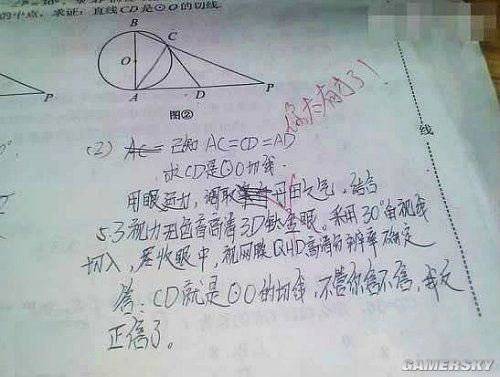 的中点，求证：直线CD是⊙O的切线.
B
C
O
A
D
P
P
图②
你太有才了！
(2) 已知 AC=CD=AD
求CD是⊙O切线.
用眼 调取 丹田之气，结合
5.3视力 高清3D钛金眼。采用30°角视线
切入，尽收眼中，视网膜QHD高清分辨率确定
答：CD就是⊙O的切线，不管你信不信，我反
正信了。
线
GAMERSKY